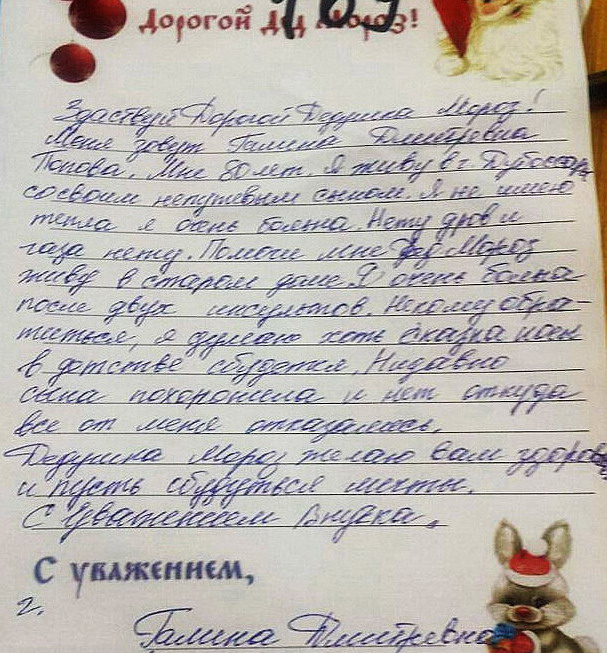 Дорогой Дед Мороз!
Здаствуй Дорогой Дедушка Мороз!
Меня зовут Галина Дмитревна
Попова. Мне 80 лет. Я живу в г. Дубоссары
со своим непутевым сыном. Я не имею
тепла я очень больна. Нету дров и
газа нету. Помоги мне Дед Мороз
живу в старом доме. Я очень больна
после двух инсультов. Некому обра-
титься, я думаю хоть сказка
в детстве сбудется. Недавно
сына похоронила и нет откуда
все от меня отказались.
Дедушка Мороз желаю вам здоровья
и пусть сбудуться мечты.
С Уважением Внучка.
С уважением,
г.
Галина Дмитревна